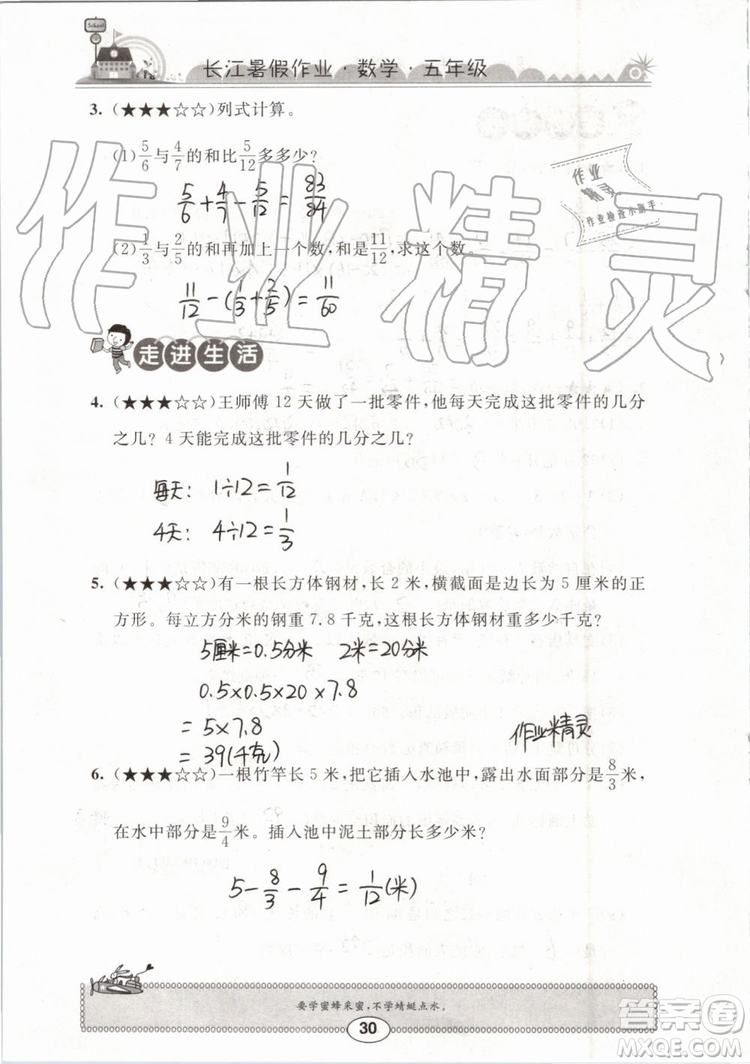 School
长江暑假作业·数学·五年级
3. (★★★☆☆)列式计算。
(1) 5/6 与 4/7 的和比 5/12 多多少?
5/6 + 4/7 - 5/12 = 83/84
(2) 1/3 与 2/5 的和再加上一个数,和是 11/12,求这个数。
11/12 - (1/3 + 2/5) = 11/60
走进生活
4. (★★★☆☆)王师傅 12 天做了一批零件,他每天完成这批零件的几分
之几? 4 天能完成这批零件的几分之几?
每天: 1÷12 = 1/12
4天: 4÷12 = 1/3
5. (★★★☆☆)有一根长方体钢材,长 2 米,横截面是边长为 5 厘米的正
方形。每立方分米的钢重 7.8 千克,这根长方体钢材重多少千克?
5厘米=0.5分米 2米=20分米
0.5×0.5×20×7.8
= 5×7.8
= 39(千克)
作业精灵
6. (★★★☆☆)一根竹竿长 5 米,把它插入水池中,露出水面部分是 8/3 米,
在水中部分是 9/4 米。插入池中泥土部分长多少米?
5 - 8/3 - 9/4 = 1/12 (米)
要学蜜蜂采蜜,不学蜻蜓点水。
30
作业精灵
作业
精灵
作业检查小助手
答案圈
MXQE.COM